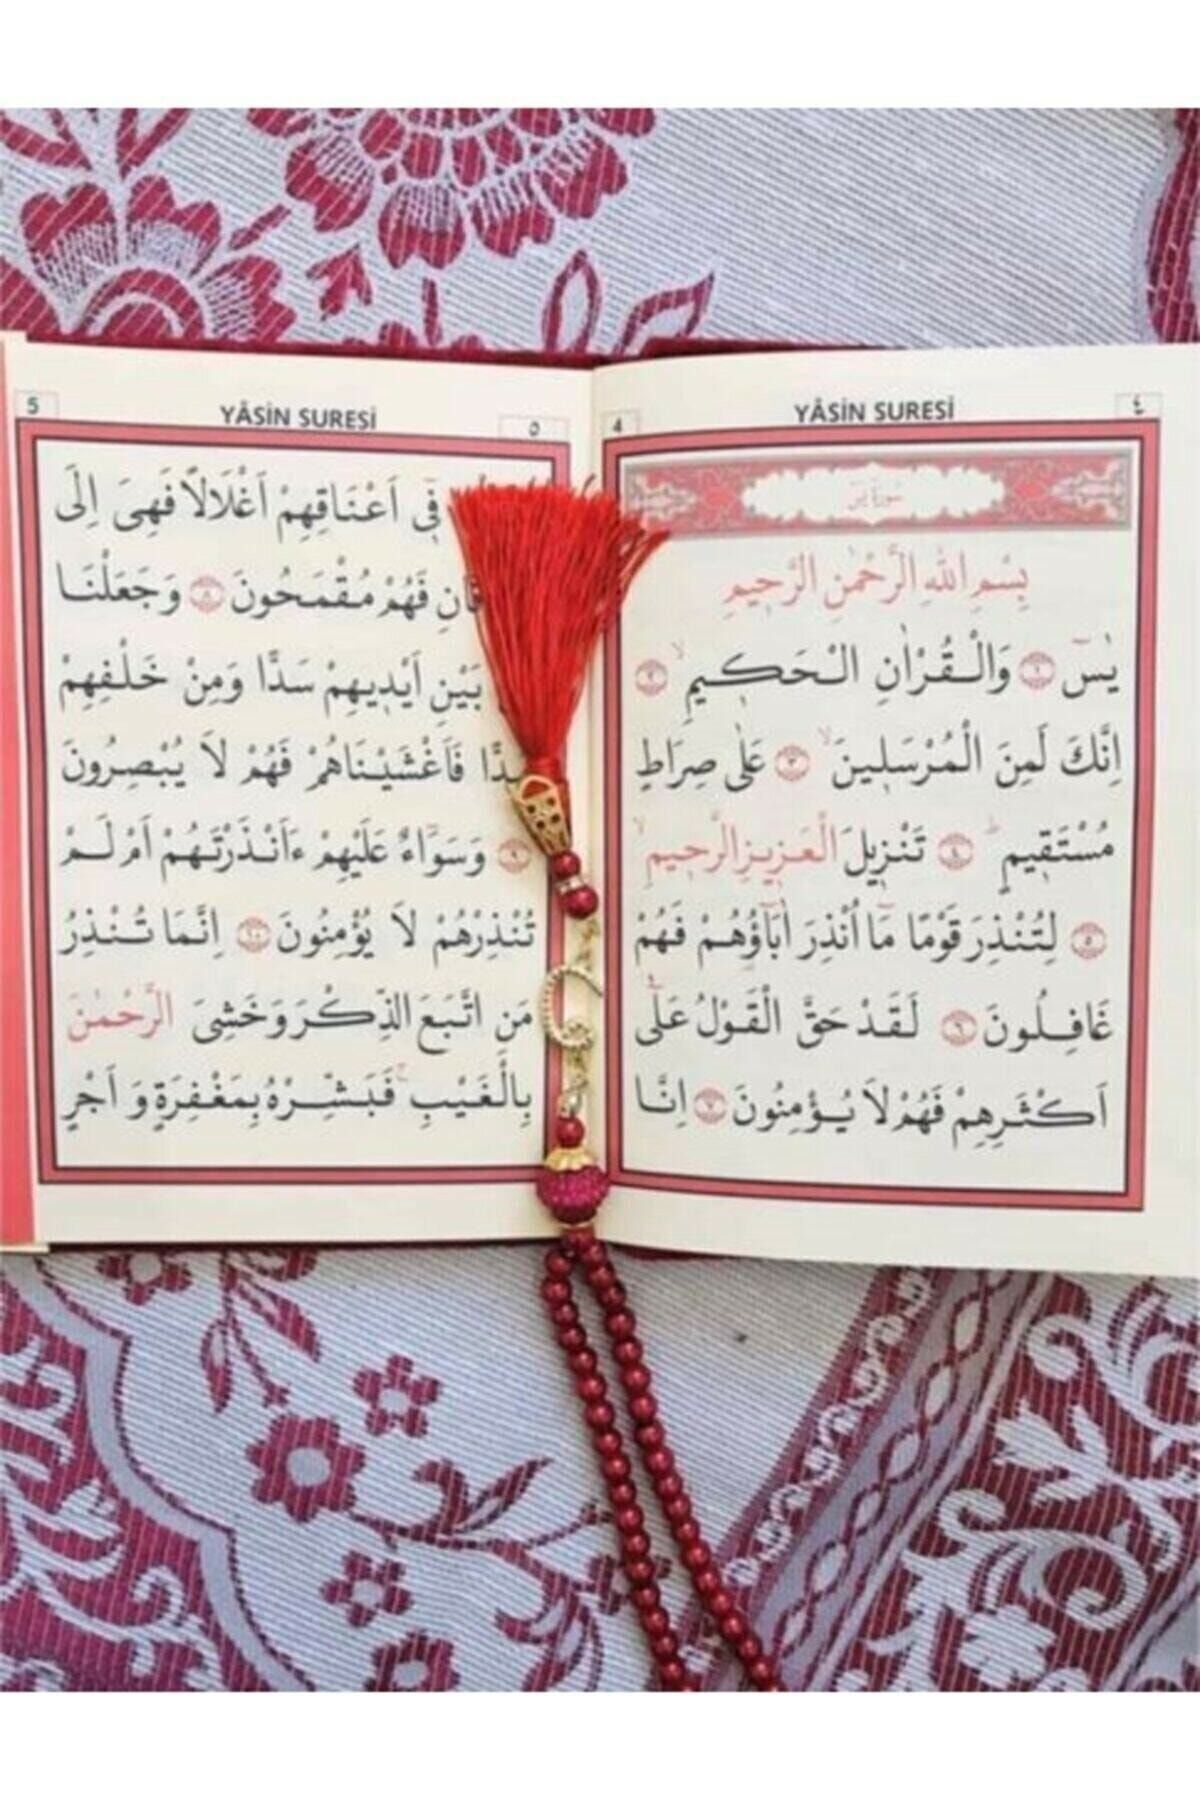 YÂSİN SURESİ
4
٤
سورة يس
بِسْمِ اللهِ الرَّحْمٰنِ الرَّحِيمِ
يٰسٓ ﴿١﴾ وَالْقُرْاٰنِ الْحَكِيمِۙ ﴿٢﴾
اِنَّكَ لَمِنَ الْمُرْسَلِينَۙ ﴿٣﴾ عَلٰى صِرَاطٍ
مُسْتَقِيمٍۜ ﴿٤﴾ تَنْزِيلَ الْعَزِيزِ الرَّحِيمِۙ
﴿٥﴾ لِتُنْذِرَ قَوْمًا مَٓا اُنْذِرَ اٰبَٓاؤُهُمْ فَهُمْ
غَافِلُونَ ﴿٦﴾ لَقَدْ حَقَّ الْقَوْلُ عَلٰٓى
اَكْثَرِهِمْ فَهُمْ لَا يُؤْمِنُونَ ﴿٧﴾ اِنَّا
5
YÂSİN SURESİ
٥
فِٓى اَعْنَاقِهِمْ اَغْلَالًا فَهِىَ اِلَى
فَهُمْ مُقْمَحُونَ ﴿٨﴾ وَجَعَلْنَا
بَيْنِ اَيْدِيهِمْ سَدًّا وَمِنْ خَلْفِهِمْ
فَاَغْشَيْنَاهُمْ فَهُمْ لَا يُبْصِرُونَ
﴿٩﴾ وَسَوَٓاءٌ عَلَيْهِمْ ءَاَنْذَرْتَهُمْ اَمْ لَمْ
تُنْذِرْهُمْ لَا يُؤْمِنُونَ ﴿١٠﴾ اِنَّمَا تُنْذِرُ
مَنِ اتَّبَعَ الذِّكْرَ وَخَشِىَ الرَّحْمٰنَ
بِالْغَيْبِۚ فَبَشِّرْهُ بِمَغْفِرَةٍ وَاَجْرٍ